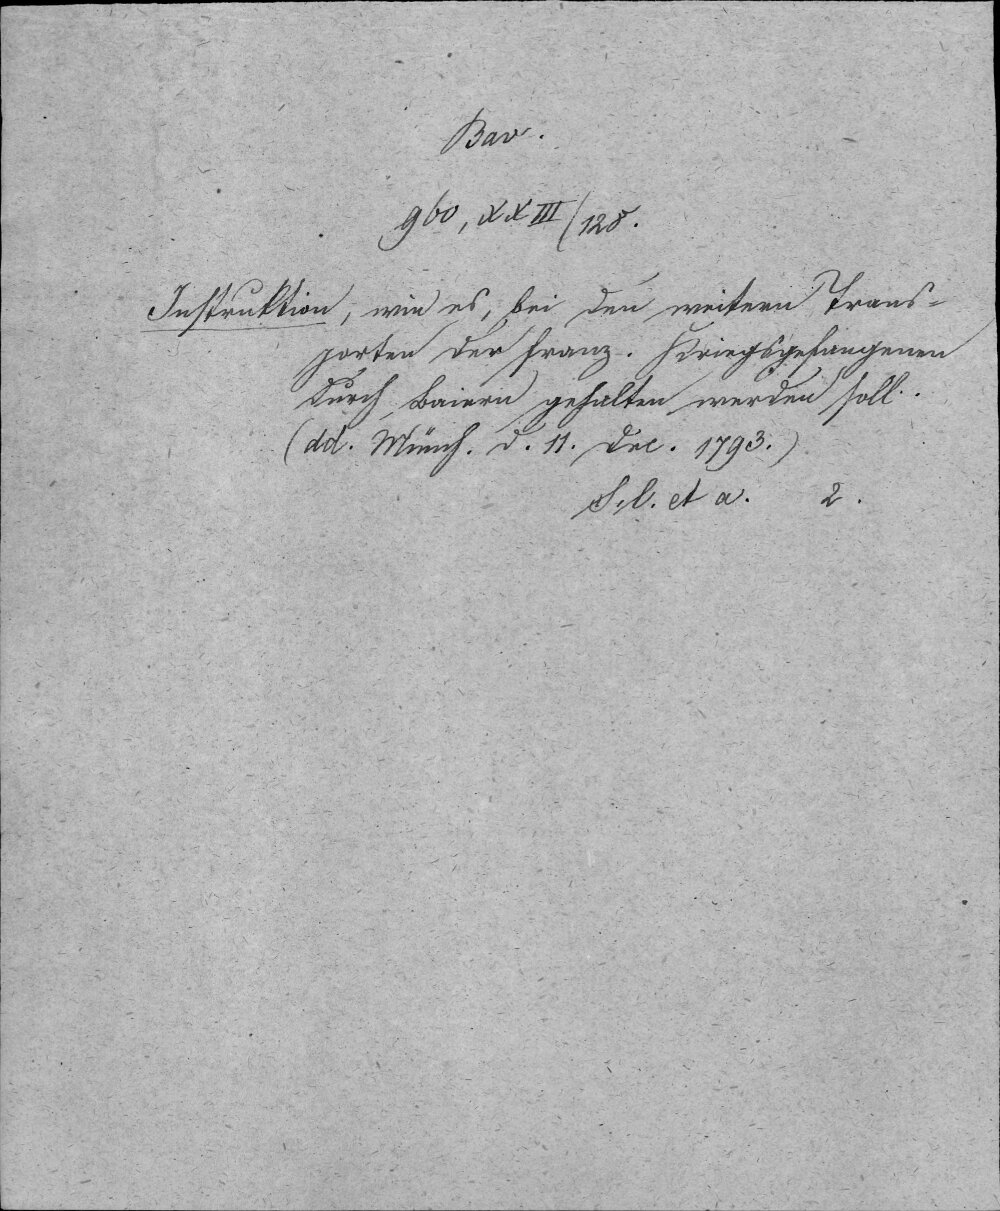 Bav.
960, XXIII/128.
Instruktion, wie es, bei den weitern Trans-
porten der franz. Kriegsgefangenen
durch Baiern gehalten werden soll.
(dd. Münch. d. 11. Dec. 1793.)
S. l. et a. 2.